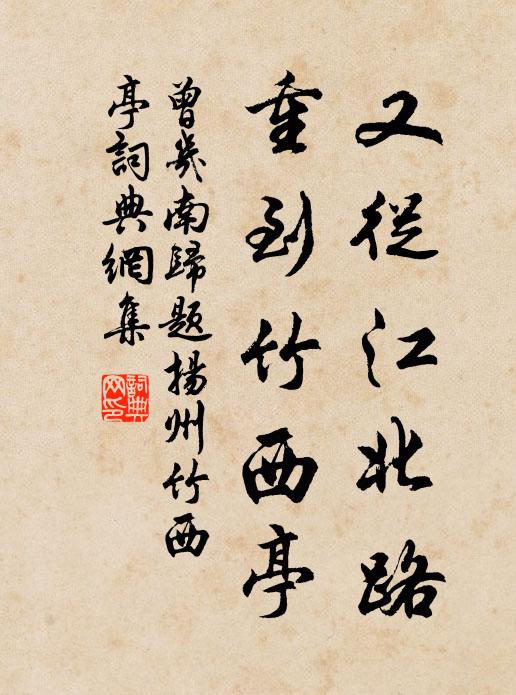 又從江北路
重到竹西亭
曾幾南歸題揚州竹西
亭詞典網集
詞典
网印